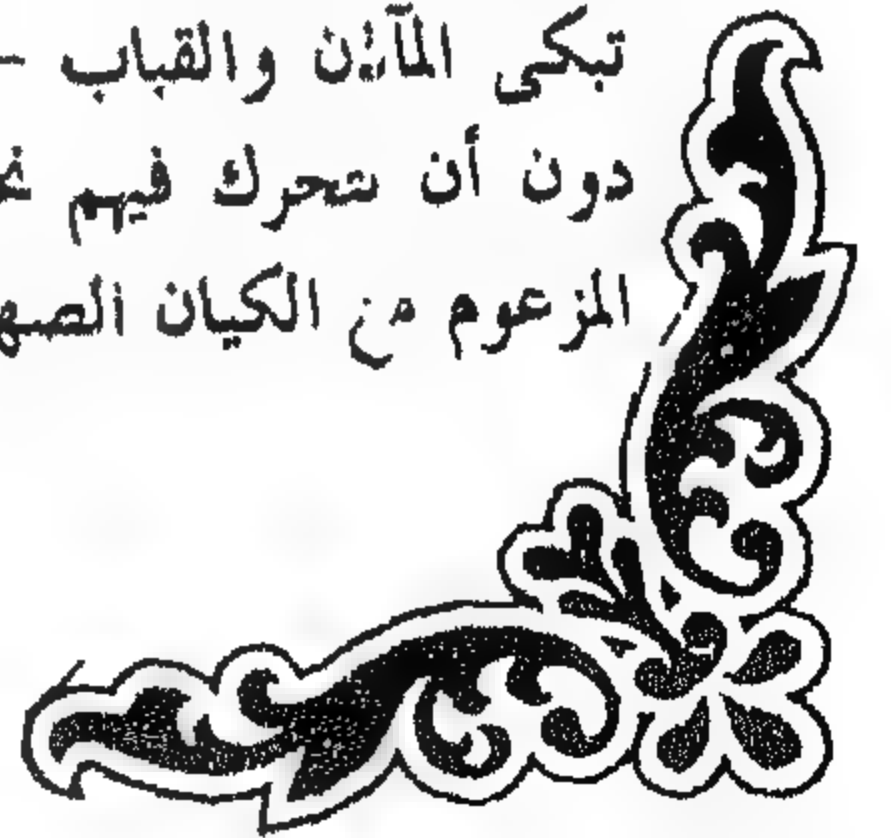 تبكى المآذن والقباب –
دون أن تتحرك فيهم
المزعوم من الكيان